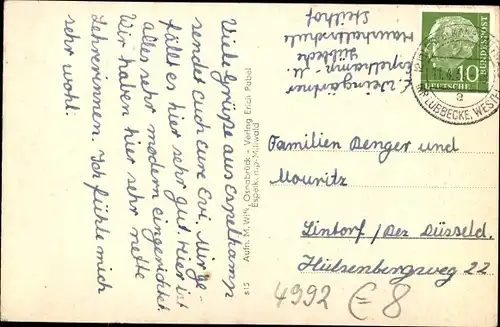 Viele Grüße aus Espelkamp
sendet euch eure Evi. Mir ge-
fällt es hier sehr gut. Hier ist
alles sehr modern eingerichtet.
Wir haben hier sehr nette
Lehrerinnen. Ich fühle mich
sehr wohl.
815 Aufn. M. Will, Osnabrück - Verlag Erich Pabel
Espelkamp-Mittwald
E. Weingärtner
Espelkamp-M.
Lübbecke
Haushaltsschule
Steilhof
DEUTSCHE
BUNDESPOST
10
11.4.
a
LÜBBECKE, WESTF
Familien Denger und
Mouritz
Lintorf / Bez Düsseld.
Hülsenbergweg 22
4992 €-8